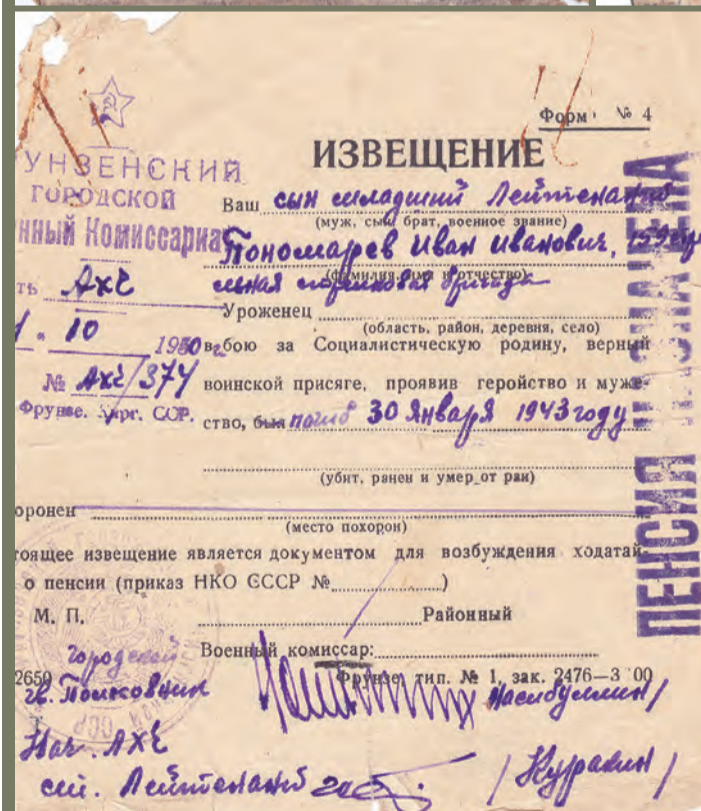 Форм № 4
ИЗВЕЩЕНИЕ
УНЗЕНСКИЙ
ГОРОДСКОЙ
нный Комиссариат
ть АХЧ
10 1950 г.
№ АХЧ/374
Фрунзе. Кирг. ССР.
Ваш сын младший Лейтенант
(муж, сын брат, военное звание)
Пономарев Иван Иванович,
(фамилия, имя и отчество)
стрелковая бригада
Уроженец
(область, район, деревня, село)
в бою за Социалистическую родину, верный
воинской присяге, проявив геройство и муже-
ство, был погиб 30 Января 1943 году
(убит, ранен и умер от ран)
оронен
(место похорон)
тоящее извещение является документом для возбуждения ходатай-
о пенсии (приказ НКО СССР № )
М. П. Районный
городской Военный комиссар:
2659 Фрунзе, тип. № 1, зак. 2476—3 00
гв. Полковник /Насибуллин/
Нач. АХЧ
ст. Лейтенант /Куракин/
ПЕНСИЯ НАЗНАЧЕНА